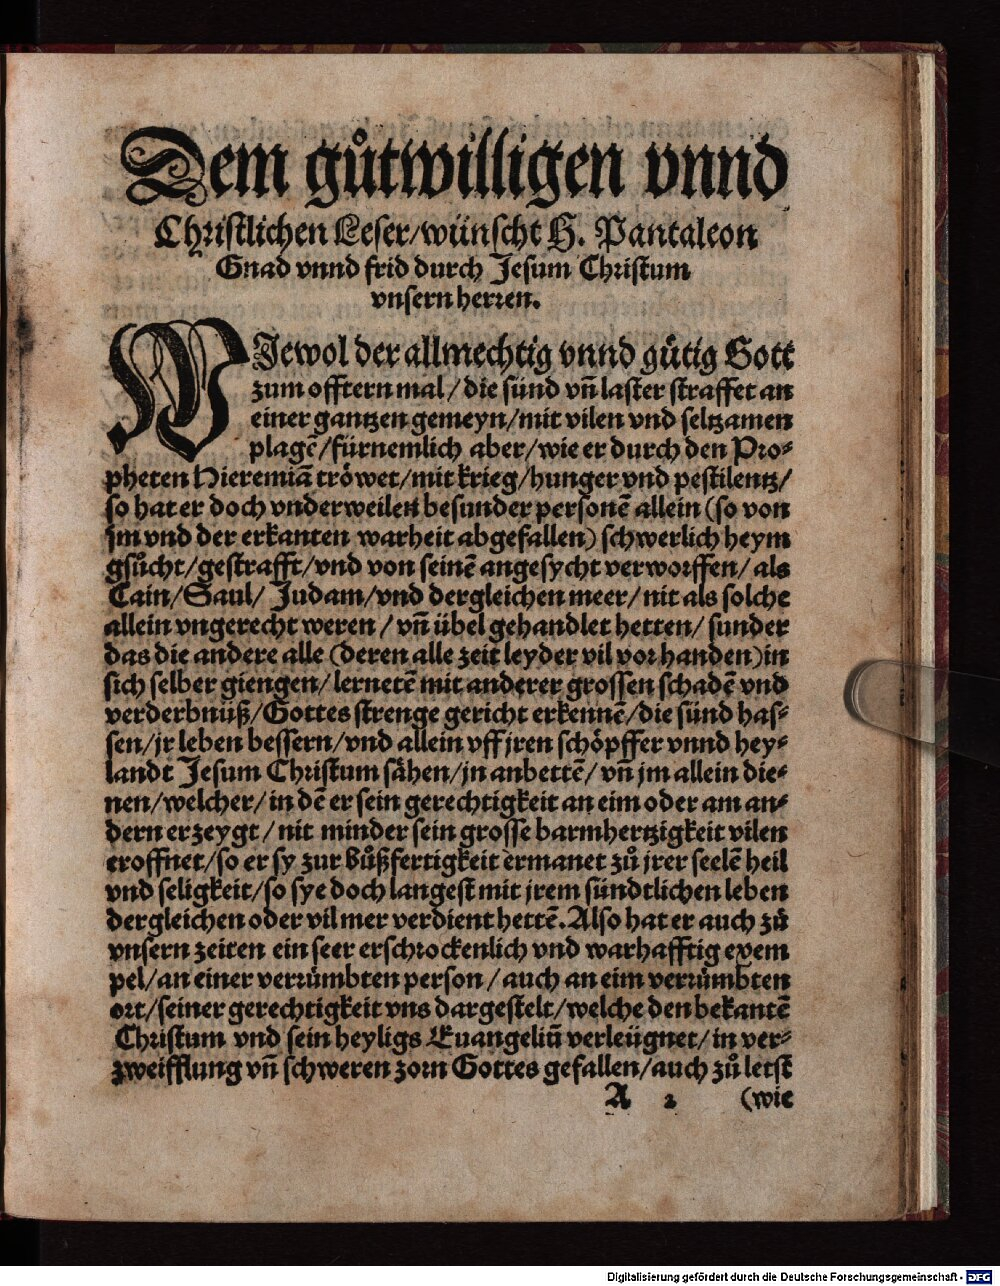 Dem gůtwilligen vnnd
Christlichen Leser/wünscht H. Pantaleon
Gnad vnnd frid durch Jesum Christum
vnsern herren.
WJewol der allmechtig vnnd gütig Gott
zum offtern mal/die sünd vñ laster straffet an
einer gantzen gemeyn/mit vilen vnd seltzamen
plagē/fürnemlich aber/wie er durch den Pro⸗
pheten Hieremiā tröwet/mit krieg/hunger vnd pestilentz/
so hat er doch vnderweilen besunder personē allein (so von
jm vnd der erkanten warheit abgefallen) schwerlich heym
gsůcht/gestrafft/vnd von seinē angesycht verworffen/als
Cain/Saul/ Judam/vnd dergleichen meer/nit als solche
allein vngerecht weren/vñ übel gehandlet hetten/sunder
das die andere alle (deren alle zeit leyder vil vorhanden)in
sich selber giengen/lernetē mit anderer grossen schadē vnd
verderbnüß/Gottes strenge gericht erkennē/die sünd has⸗
sen/jr leben bessern/vnd allein vff jren schöpffer vnnd hey⸗
landt Jesum Christum sähen/jn anbettē/vñ jm allein die⸗
nen/welcher/in dē er sein gerechtigkeit an eim oder am an⸗
dern erzeygt/nit minder sein grosse barmhertzigkeit vilen
eroffnet/so er sy zur bůßfertigkeit ermanet zů jrer seelē heil
vnd seligkeit/so sye doch langest mit jrem sündtlichen leben
dergleichen oder vil mer verdient hettē. Also hat er auch zů
vnsern zeiten ein seer erschrockenlich vnd warhafftig exem
pel/an einer verrümbten person/auch an eim verrümbten
ort/seiner gerechtigkeit vns dargestelt/welche den bekantē
Christum vnd sein heyligs Euangeliū verleügnet/in ver⸗
zweifflung vñ schweren zorn Gottes gefallen/auch zů letst
A 2 (wie
Digitalisierung gefördert durch die Deutsche Forschungsgemeinschaft - DFG